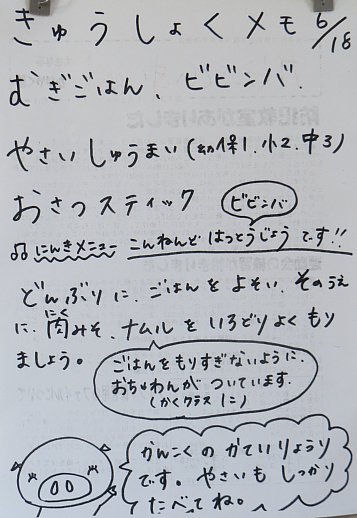 きゅうしょくメモ 6/18
むぎごはん、ビビンバ、
やさいしゅうまい(幼保1、小2、中3)
おさつスティック
ビビンバ
にんきメニュー こんねんど はつとうじょう です!!
どんぶりに、ごはんを よそい、そのうえ
に、肉みそ、ナムルを いろどりよく もり
にく
ましょう。
ごはんをもりすぎないように、
おちゃわんが ついています。
(かくクラスに)
かんこくの かていりょうり
です。やさいも しっかり
たべてね。